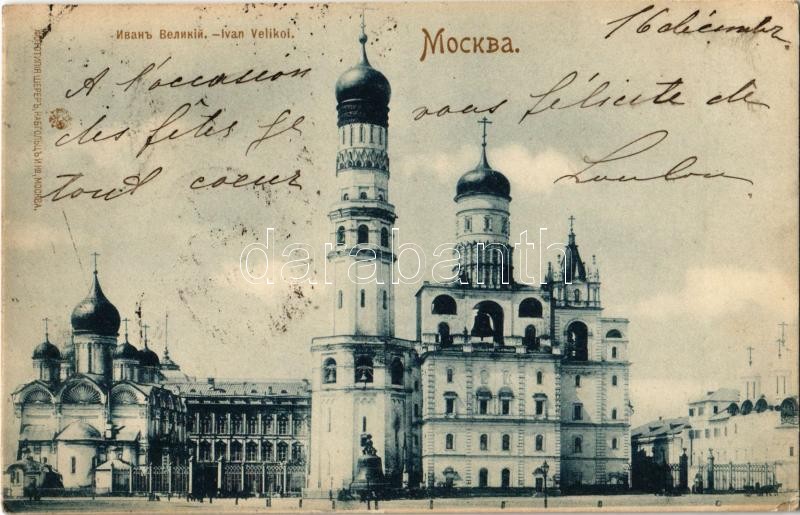 Иванъ Великій. —Ivan Velikoi.
Москва.
16 décembr
A l'occasion
des fêtes je
tout coeur
vous félicite de
Loulou
ФОТОТИПІЯ ШЕРЕРЪ, НАБГОЛЬЦЪ И Кº, МОСКВА.
darabanth